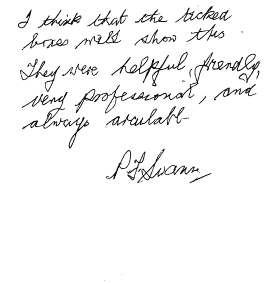 I think that the ticked
boxes will show this.
They were helpful, friendly,
very professional, and
always availabl
P F Swann